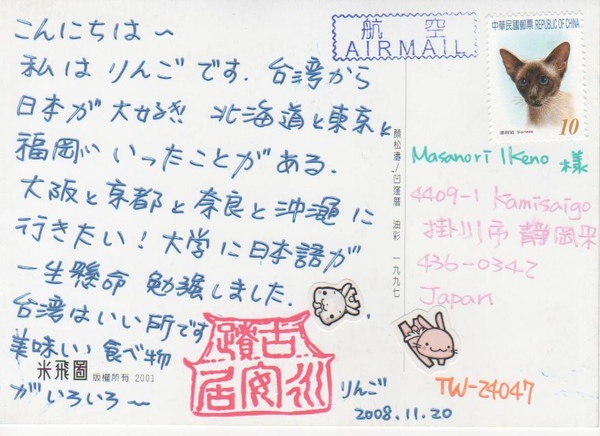 こんにちは～
私はりんごです. 台湾から
日本が大好き!! 北海道と東京と
福岡いったことがある.
大阪と京都と奈良と沖縄に
行きたい! 大学に日本語が
一生懸命 勉強しました.
台湾はいい所です
美味しい食べ物
がいろいろ～
米飛圖 版權所有 2001
りんご
2008.11.20
顏松濤/凹窪厝 油彩 一九九七
航空
AIRMAIL
中華民國郵票 REPUBLIC OF CHINA
Siamese
10
Masanori Ikeno 様
4409-1 Kamisaigo
掛川市 静岡県
436-0342
Japan
TW-24047